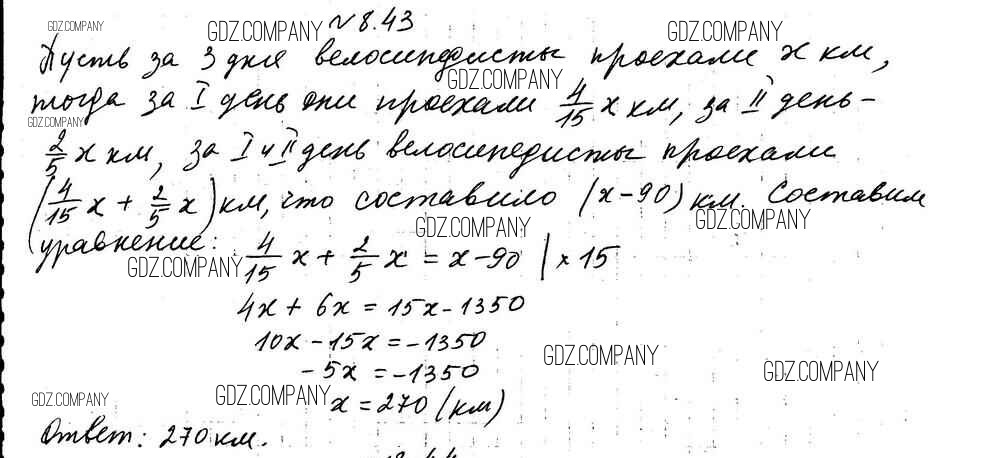 №8.43
Пусть за 3 дня велосипедисты проехали x км,
тогда за I день они проехали 4/15 x км, за II день –
2/5 x км, за I и II день велосипедисты проехали
(4/15 x + 2/5 x) км, что составило (x-90) км. Составим
уравнение: 4/15 x + 2/5 x = x-90 | × 15
4x + 6x = 15x - 1350
10x - 15x = -1350
- 5x = -1350
x = 270 (км)
Ответ: 270 км.
GDZ.COMPANY
GDZ.COMPANY
GDZ.COMPANY
GDZ.COMPANY
GDZ.COMPANY
GDZ.COMPANY
GDZ.COMPANY
GDZ.COMPANY
GDZ.COMPANY
GDZ.COMPANY
GDZ.COMPANY
GDZ.COMPANY